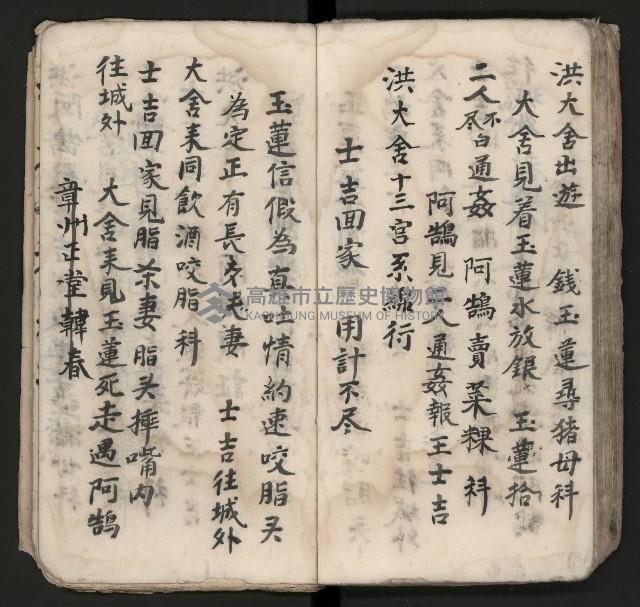 洪大舍出遊　錢玉蓮尋猪母科
大舍見着玉蓮水放銀　玉蓮拾
二人不尽白通姦　阿鵠賣菜粿科
阿鵠見二人通姦報王士吉
洪大舍十三宮系 行
士吉回家　用計不尽
玉蓮信假為真吐情約速咬脂头
為定正有長 夫妻　士吉往城外
大舍来同飲酒咬脂科
士吉回家見脂杀妻脂头捧嘴内
往城外　大舍来見玉蓮死走遇阿鵠
章州正堂韓春
高雄市立歷史博物館
KAOHSIUNG MUSEUM OF HISTORY